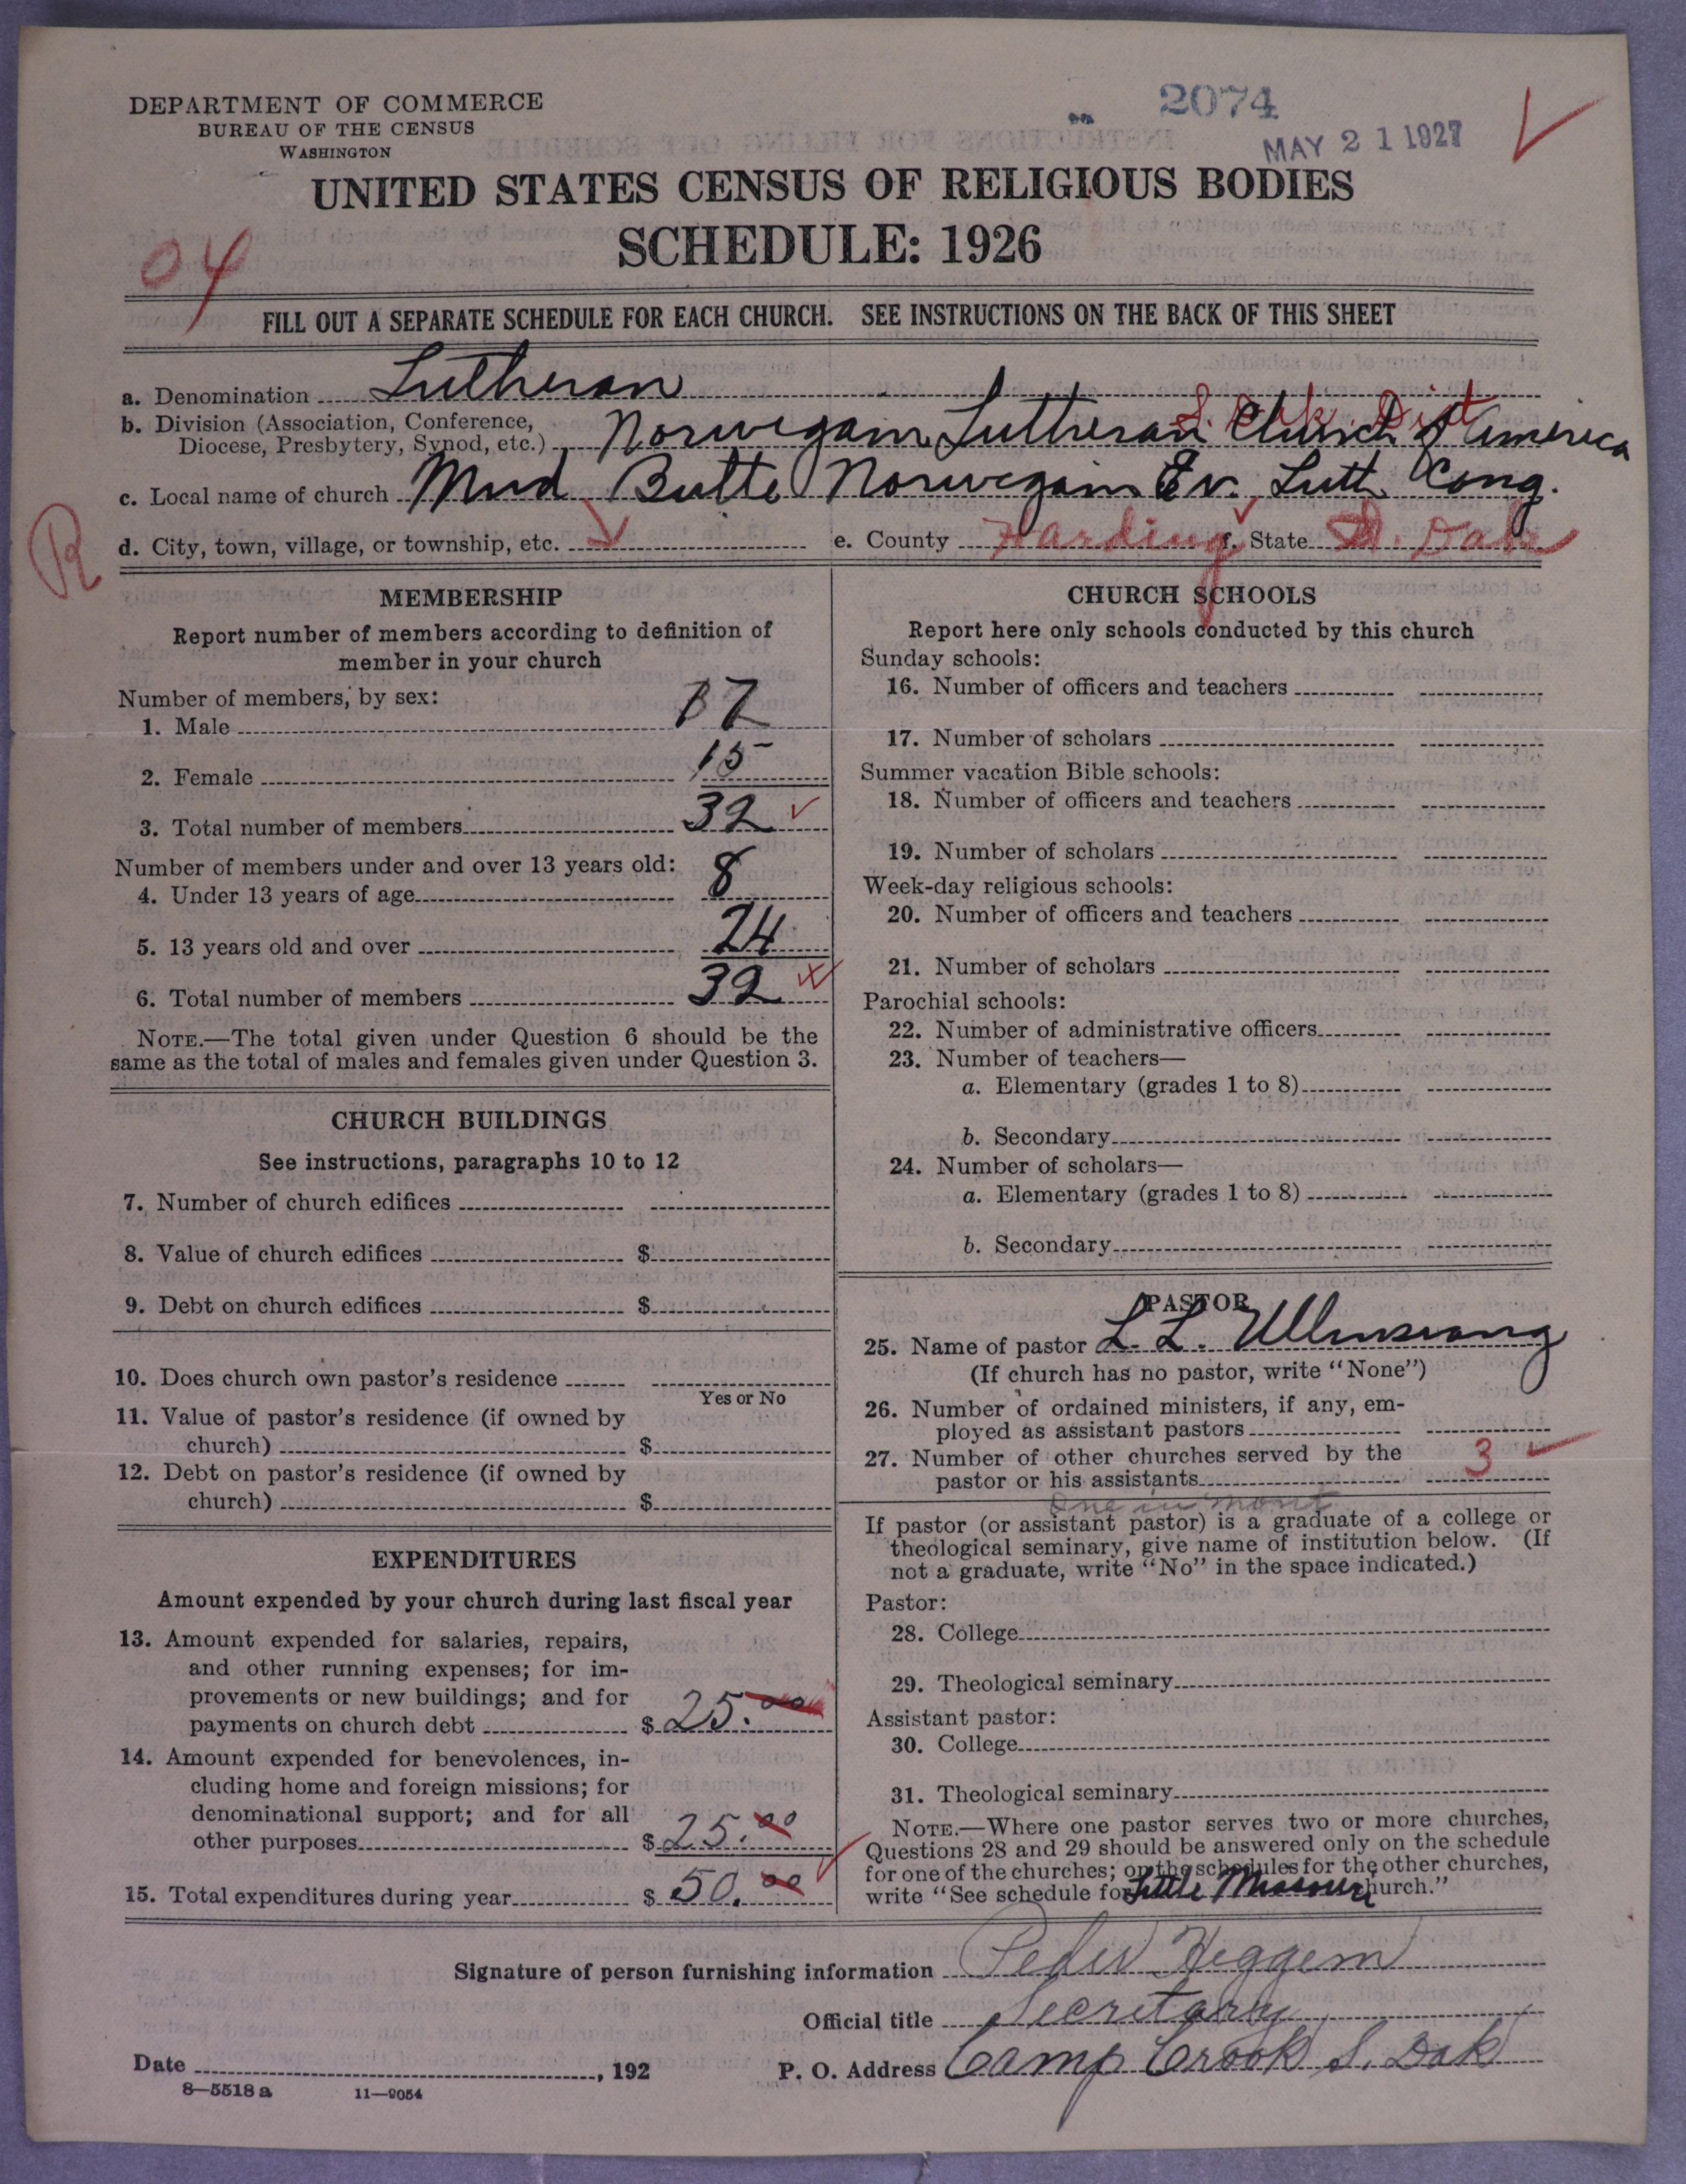 DEPARTMENT OF COMMERCE
BUREAU OF THE CENSUS
WASHINGTON
2074
MAY 21 1927
UNITED STATES CENSUS OF RELIGIOUS BODIES
SCHEDULE: 1926
04
FILL OUT A SEPARATE SCHEDULE FOR EACH CHURCH. SEE INSTRUCTIONS ON THE BACK OF THIS SHEET
a. Denomination Lutheran
S. Dak. Dist
b. Division (Association, Conference,
Diocese, Presbytery, Synod, etc.) Norwegian Lutheran Church of America
c. Local name of church Mud Butte Norwegian Ev. Luth Cong.
R
d. City, town, village, or township, etc. e. County Harding f. State S. Dak
MEMBERSHIP
Report number of members according to definition of
member in your church
Number of members, by sex:
1. Male 17
2. Female 15
3. Total number of members 32
Number of members under and over 13 years old:
4. Under 13 years of age 8
5. 13 years old and over 24
6. Total number of members 32
NOTE.—The total given under Question 6 should be the
same as the total of males and females given under Question 3.
CHURCH BUILDINGS
See instructions, paragraphs 10 to 12
7. Number of church edifices
8. Value of church edifices $
9. Debt on church edifices $
10. Does church own pastor's residence
Yes or No
11. Value of pastor's residence (if owned by
church) $
12. Debt on pastor's residence (if owned by
church) $
EXPENDITURES
Amount expended by your church during last fiscal year
13. Amount expended for salaries, repairs,
and other running expenses; for im-
provements or new buildings; and for
payments on church debt $ 25.00
14. Amount expended for benevolences, in-
cluding home and foreign missions; for
denominational support; and for all
other purposes $ 25.00
15. Total expenditures during year $ 50.00
CHURCH SCHOOLS
Report here only schools conducted by this church
Sunday schools:
16. Number of officers and teachers
17. Number of scholars
Summer vacation Bible schools:
18. Number of officers and teachers
19. Number of scholars
Week-day religious schools:
20. Number of officers and teachers
21. Number of scholars
Parochial schools:
22. Number of administrative officers
23. Number of teachers—
a. Elementary (grades 1 to 8)
b. Secondary
24. Number of scholars—
a. Elementary (grades 1 to 8)
b. Secondary
PASTOR
25. Name of pastor L. L.
(If church has no pastor, write "None")
26. Number of ordained ministers, if any, em-
ployed as assistant pastors
27. Number of other churches served by the
pastor or his assistants 3
One in mont
If pastor (or assistant pastor) is a graduate of a college or
theological seminary, give name of institution below. (If
not a graduate, write "No" in the space indicated.)
Pastor:
28. College
29. Theological seminary
Assistant pastor:
30. College
31. Theological seminary
NOTE.—Where one pastor serves two or more churches,
Questions 28 and 29 should be answered only on the schedule
for one of the churches; on the schedules for the other churches,
write "See schedule for Little Missouri church."
Signature of person furnishing information Peder Heggem
Official title Secretary
Date , 192 P. O. Address Camp Crook S. Dak
8—5518 a 11—9054